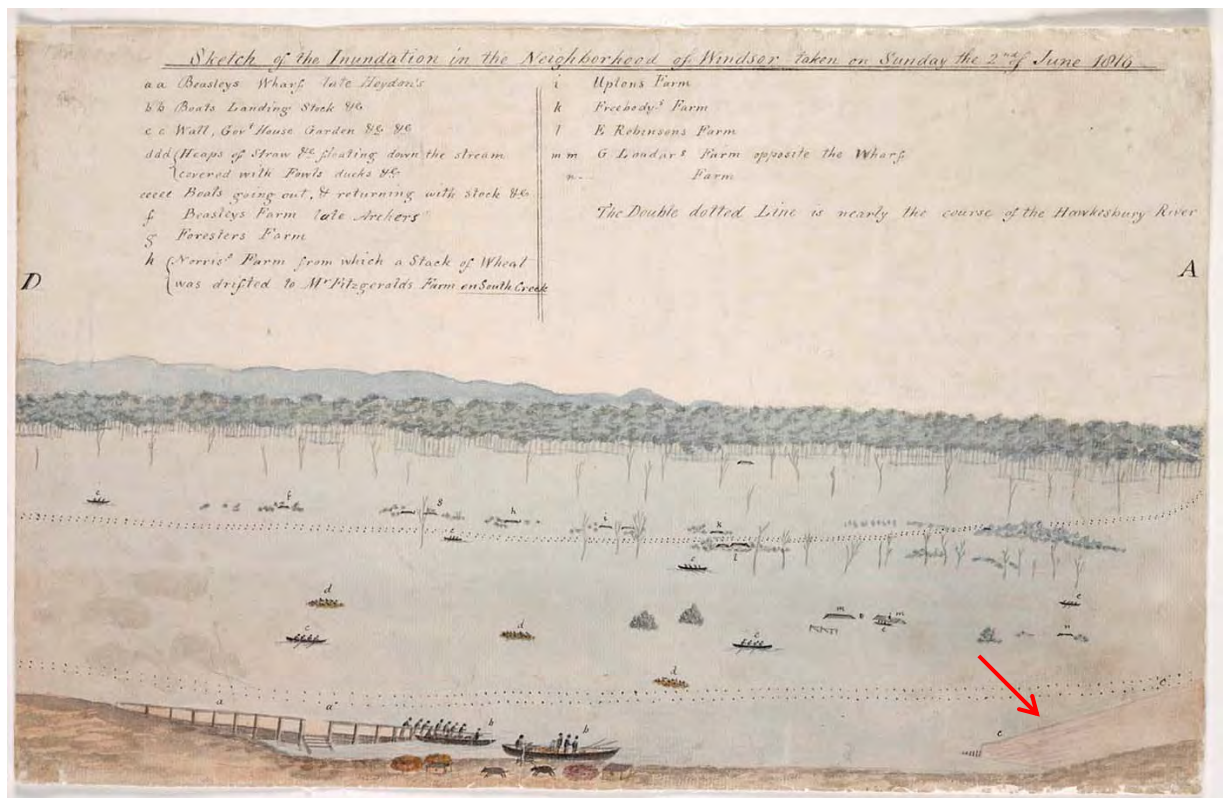 Sketch of the Inundation in the Neighborhood of Windsor taken on Sunday the 2nd of June 1816
a a Beasleys Wharf late Heydon's
b b Boats Landing Stock &c
c c Wall, Govt House Garden &c &c
ddd (Heaps of Straw &c floating down the stream
covered with Fowls ducks &c
eeeee Boats going out, & returning with stock &c
f Beasleys Farm late Archers
g Foresters Farm
h (Norris's Farm from which a Stack of Wheat
was drifted to Mr Fitzgeralds Farm on South Creek
i Uptons Farm
k Freebodys Farm
l E Robinsons Farm
m m G Loudars Farm opposite the Wharf
n... Farm
The Double dotted Line is nearly the course of the Hawkesbury River
D
A
e
f
g
h
i
k
e
l
e
d
m
m
e
e
n
e
d
e
d
c
a
a
b
b
c